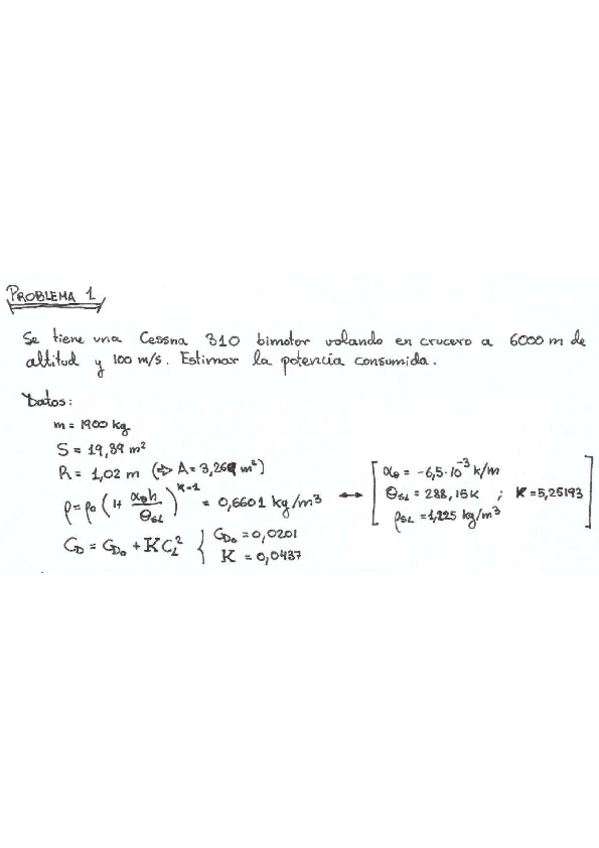 PROBLEMA 1
Se tiene una Cessna 310 bimotor volando en crucero a 6000 m de
altitud y 100 m/s. Estimar la potencia consumida.
Datos:
m = 1900 kg
S = 19,39 m²
R = 1,02 m (⇒ A = 3,269 m²)
ρ = ρ₀ (1 + α₀h / Θ_SL)^(K-1) = 0,6601 kg/m³ ↔ [ α₀ = -6,5·10⁻³ K/m
Θ_SL = 288,15K ; K = 5,25193
ρ_SL = 1,225 kg/m³ ]
C_D = C_D₀ + KC_L² { C_D₀ = 0,0201
K = 0,0437